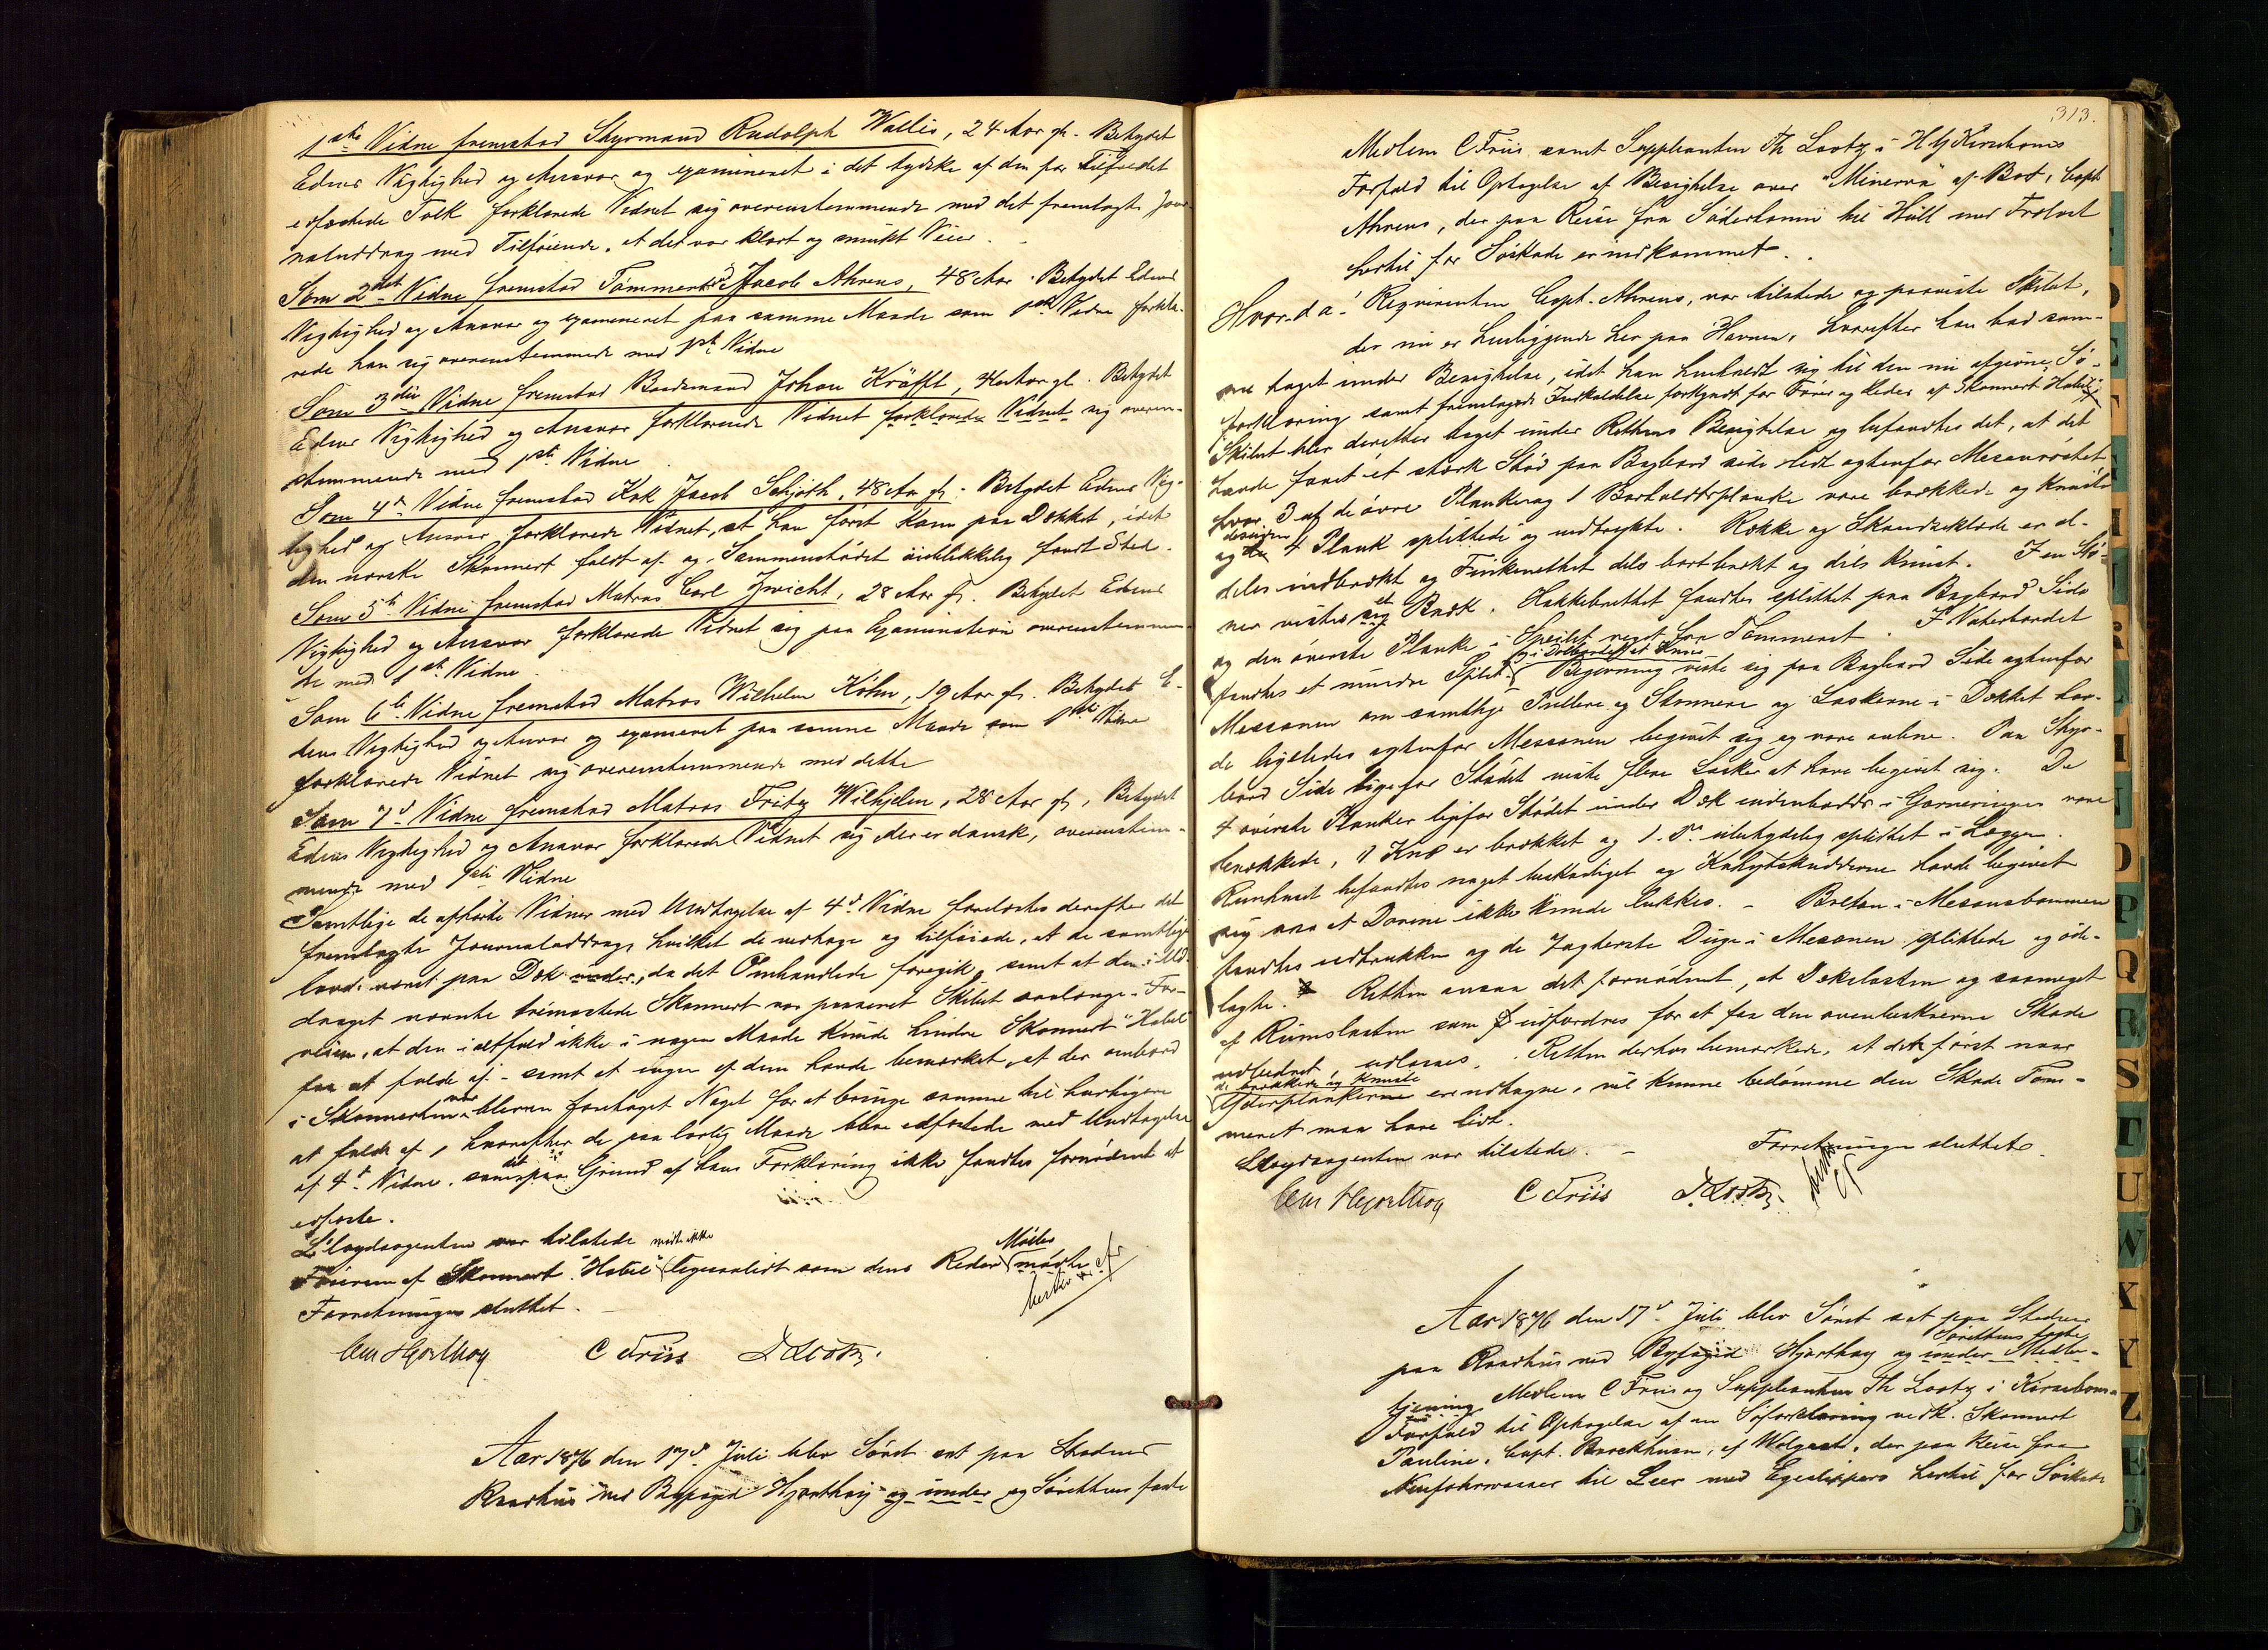 1ste Vidne fremstod Styrmand Rudolph Wallis, 24 Aar gl. Betydet
Edens Vigtighed og Ansvar og examineret i det tydske af den for Tilfældet
edfæstede Tolk forklarede Vidnet sig overensstemmende med det fremlagte Jour-
naluddrag med Tilføiende, at det var klart og smukt Veir.
Som 2det Vidne fremstod Tømmermd Jacob Ahrens, 48 Aar. Betydet Edens
Vigtighed og Ansvar og examineret paa samme Maade som 1ste Vidne forkla-
rede han sig overensstemmende med 1ste Vidne
Som 3die Vidne fremstod Baadsmand Johan Kräfft, Aar gl. Betydet
Edens Vigtighed og Ansvar forklarende Vidnet forklarede Vidnet sig overens-
stemmende med 1ste Vidne.
Som 4de Vidne fremstod Kok Jacob Schjøth, 48 Aar gl. Betydet Edens Vig-
tighed og Ansvar forklarede Vidnet, at han først kom paa Dækket, idet
den norske Skonnert faldt af og Sammenstødet øieblikkelig fandt Sted.
Som 5te Vidne fremstod Matros Carl Zwicht, 28 Aar gl. Betydet Edens
Vigtighed og Ansvar forklarede Vidnet sig paa Examination overensstemmen-
de med 1ste Vidne.
Som 6te Vidne fremstod Matros Wilhelm Köhn, 19 Aar gl. Betydet E-
dens Vigtighed og Ansvar og examineret paa samme Maade som 1ste Vidne
forklarede Vidnet sig overensstemmende med dette
Som 7de Vidne fremstod Matros Fritz Wilhjelm, 28 Aar gl, Betydet
Edens Vigtighed og Ansvar forklarede Vidnet sig der er dansk, overensstem-
mende med 1ste Vidne
Samtlige de afhørte Vidner med Undtagelse af 4de Vidne forelæstes derefter det
fremlagte Journaluddrag, hvilket de vedtoge og tilføiede, at de samtlige
havde været paa Dæk under, da det Omhandlede foregik, samt at den i Ud-
draget nævnte tremastede Skonnert var passeret Skibet saalænge i For-
veien, at den ialtfald ikke i nogen Maade kunde hindre Skonnert "Habil"
fra at falde af - samt at ingen af dem havde bemærket, at der ombord
i Skonnerten var bleven foretaget Noget for at bringe samme til hurtigere
at falde af, hvorefter de paa lovlig Maade bleve edfæstede med Undtagelse
af 4de Vidne, som det paa Grund af hans Forklaring ikke fandtes fornødent at
edfæste.
Lloydsagenten var tilstede mødte ikke
Føreren af Skonnert "Habil" ligesaalidt som dens Reder Møller mødte
bestv
Forretningen sluttet. -
Chr Hjorthøy C Friis T Lootz.
Aar 1876 den 17de Juli blev Søret sat paa Stadens
Raadhus ved Byfogd Hjorthøy og under og Sørettens faste
313.
Medlem C Friis samt Suppleanten Th Lootz i H Hj Kirseboms
Forfald til Optagelse af Besigtelse over "Minerva" af Bast, Capt.
Ahrens, der paa Reise fra Söderhamn til Hull med Trælast
hertil for Søskade er indkommet.
Hvor da: Reqvirenten Capt. Ahrens, var tilstede og paaviste Skibet,
der nu er henliggende her paa Havnen, hvorefter han bad sam-
me taget under Besigtelse, idet han henholdt sig til den nu afgivne Sø-
forklaring samt fremlagde Indkaldelse forkyndt for Fører og Reder af Skonnert Habil.
Skibet blev derefter taget under Rettens Besigtelse og befandtes det, at det
havde faaet et stærk Stød paa Bagbord side lidt agtenfor Mesanrøstet
hvor 3 af de øvre Planker og 1 Barholdtsplanke vare brækkede og knuste
og desuden 4 Plank splittede og nedtrykte. Række og Skandseklæde er al-
deles indbrækt og Finkenettet dels bortbrækt og dels knust. I en Stø-
ner vistes sig et Bræk. Hakkebrettet fandtes splittet paa Bagbord Side
og den øverste Planke i Speilet veget fra Tømmeret. I Vaterbordet
fandtes et mindre Split og i Dolbordet et Knæ Begivning viste sig paa Bagbord Side agtenfor
Messanen om samtlige Pullere og Stønnere og Laskerne i Dækket hav-
de ligeledes agtenfor Messanen begivet sig og vare aabne. Paa Styr-
bord Side ligefor Stødet viste flere Lasker at have begivet sig. De
4 øverste Planker ligefor Stødet under Dæk indenbords i Garneringen vare
brækkede, 1 Knæ er brækket og 1 Do ubetydelig splittet i Læggen.
Rumhuset befandtes noget beskadiget og Kahytsskudderne havde begivet
sig saa at Dørene ikke kunde lukkes. - Bolten i Mesansbommen
fandtes udtrukken og de Jagterste Duge i Mesanen splittede og øde-
lagte. Retten ansaa det fornødent, at Dækslasten og saameget
af Rumslasten som udfordres for at faa den ovenbeskrevne Skade
udbedret, udlosses. Retten derhos bemærkede, at dette først naar
de brækkede og knuste
Yderplankerne ere udtagne, vil kunne bedømme den Skade Tøm-
meret maa have lidt.
Lloydsagenten var tilstede. - Forretningen sluttet.
Chr Hjorthoy C Friis T Lootz.
Aar 1876 den 17de Juli blev Søret sat paa Stadens
paa Raadhus ved Byfogd Hjorthøy og under Medbe- Sørettens faste
tjening Medlem C Friis og Suppleanten Th Lootz i Kirseboms
Forfald til Optagelse af en Søforklaring vedk. Skonnert
Pauline, Capt. Brockhusen, af Wolgast, der paa Reise fra
Neufahrwasser til Leer med Egeslippers hertil for Søskade